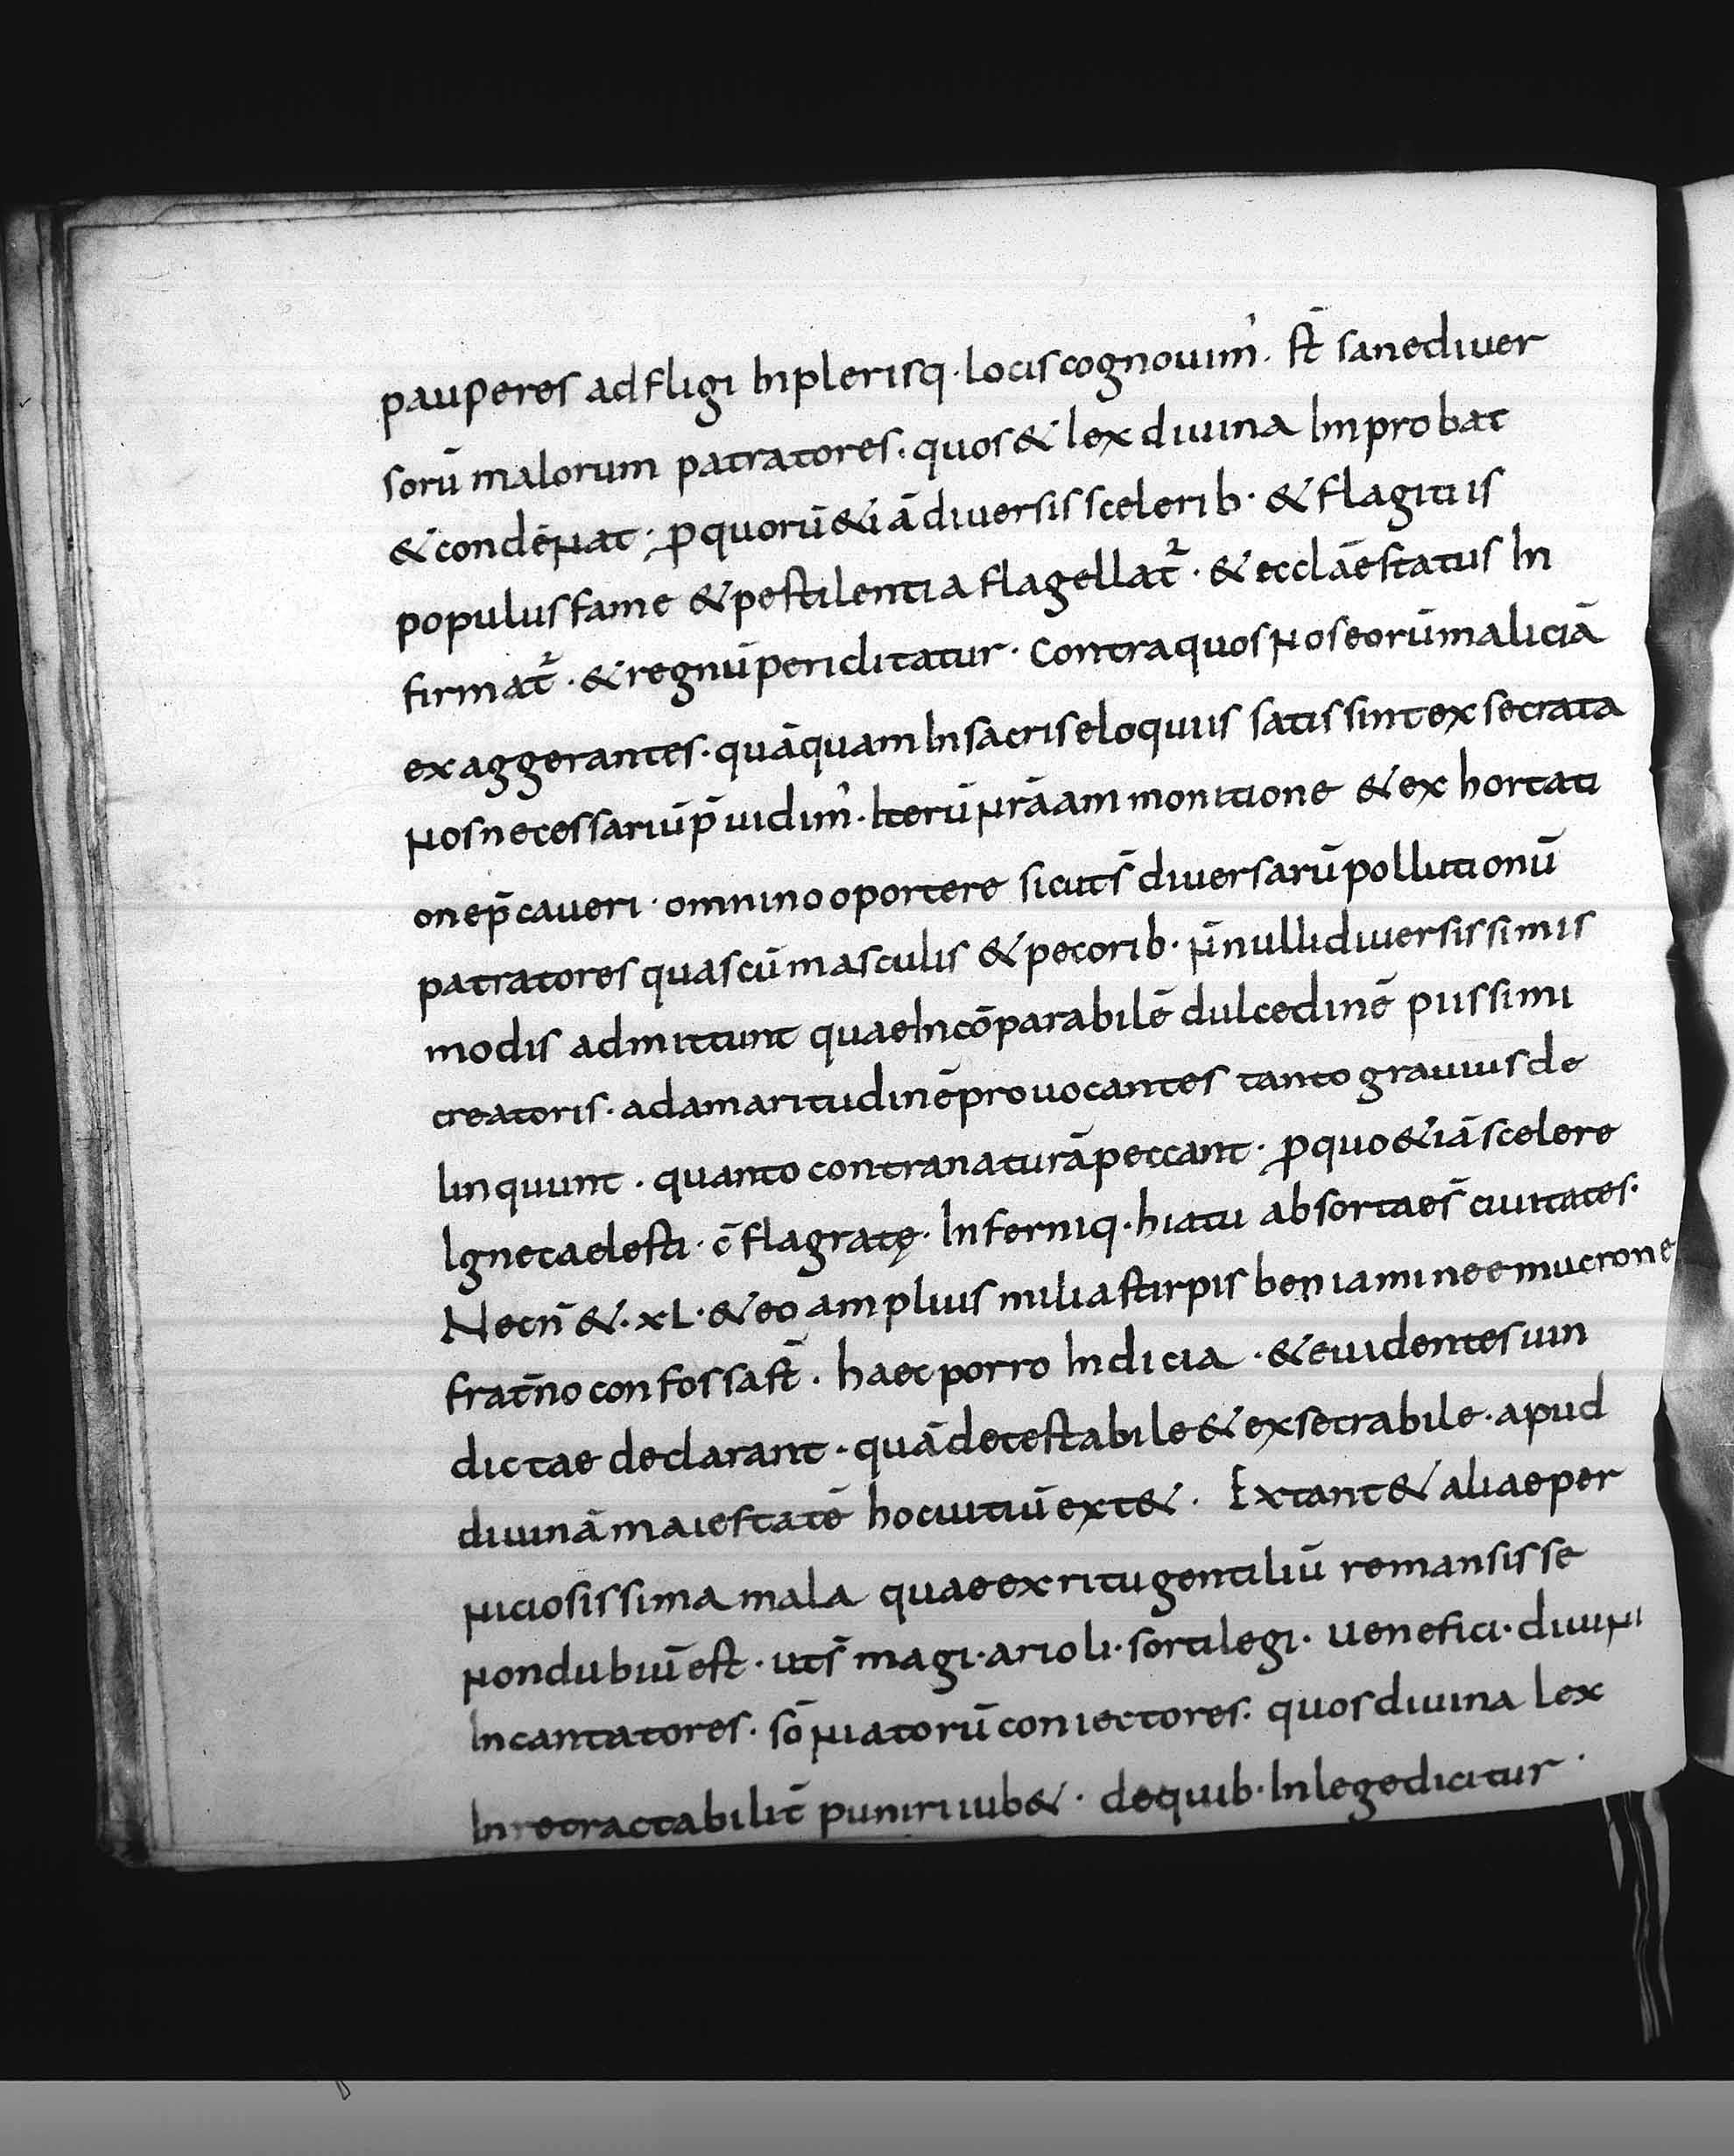 pauperes adfligi Inplerisq· locis cognouim᾽. st̄ sane diuer
sorū malorum patratores· quos & lex diuina Improbat
& condēnat· ꝓ quorū &iā diuersis scelerib· & flagitiis
populus fame & pestilentia flagellat᷑· & ecclāe status In
firmat᷑· & regnū periclitatur· Contra quos nos eorū maliciā
exaggerantes· quāquam In sacris eloquiis satis sint exsecrata
nos necessariū p̄uidim᾽· Iterū nrā ammonitione & exhortati
one p̄caueri· omnino oportere sicut s̄ diuersarū pollutionū
patratores quas cū masculis & pecorib· n̄nulli diuersissimis
modis admittunt quae Incōparabilē dulcedinē piissimi
creatoris· ad amaritudinē prouocantes tanto grauius de
linquunt· quanto contra naturā peccant· ꝓ quo &iā scelere
Igne caelesti· c̄flagratę· Inferniq· hiatu absortae s̄ ciuitates·
Necn̄ &· xL· & eo amplius milia stirpis beniamineę mucrone
frat̄no confossa st̄· haec porro Indicia· & euidentes uin
dictae declarant· quā detestabile & exsecrabile· apud
diuinā maiestatē hoc uitiū ext&· Extant & alia per
niciosissima mala quae ex ritu gentiliū remansisse
non dubiū est· ut s̄ magi· arioli· sortilegi· uenefici· diuini
Incantatores· sōniatorū coniectores· quos diuina lex
Inretractabilit̄ puniri iub&· de quib· In lege dicitur·